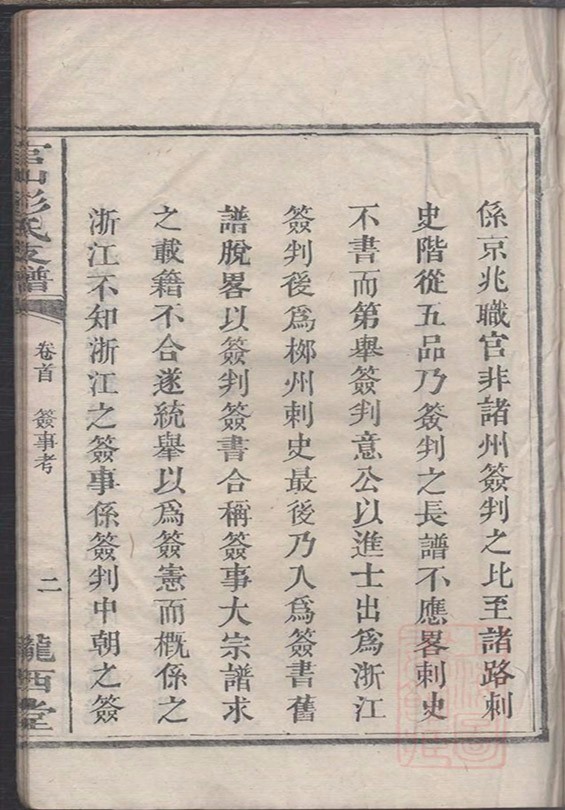 係京兆職官非諸州簽判之比至諸路刺
史階從五品乃簽判之長譜不應畧刺史
不書而第舉簽判意公以進士出爲浙江
簽判後爲梛州刺史最後乃入爲簽書舊
譜脫畧以簽判簽書合稱簽事大宗譜求
之載籍不合遂統舉以爲簽憲而概係之
浙江不知浙江之簽事係簽判中朝之簽
彭氏支譜
卷首 簽事考
二
隴西堂